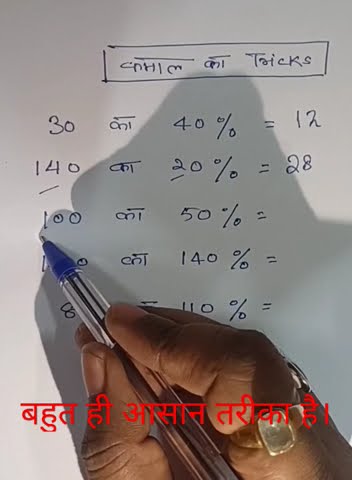 कमाल का Tricks
30 का 40% = 12
140 का 20% = 28
100 का 50% =
का 140% =
8 110% =
बहुत ही आसान तरीका है।